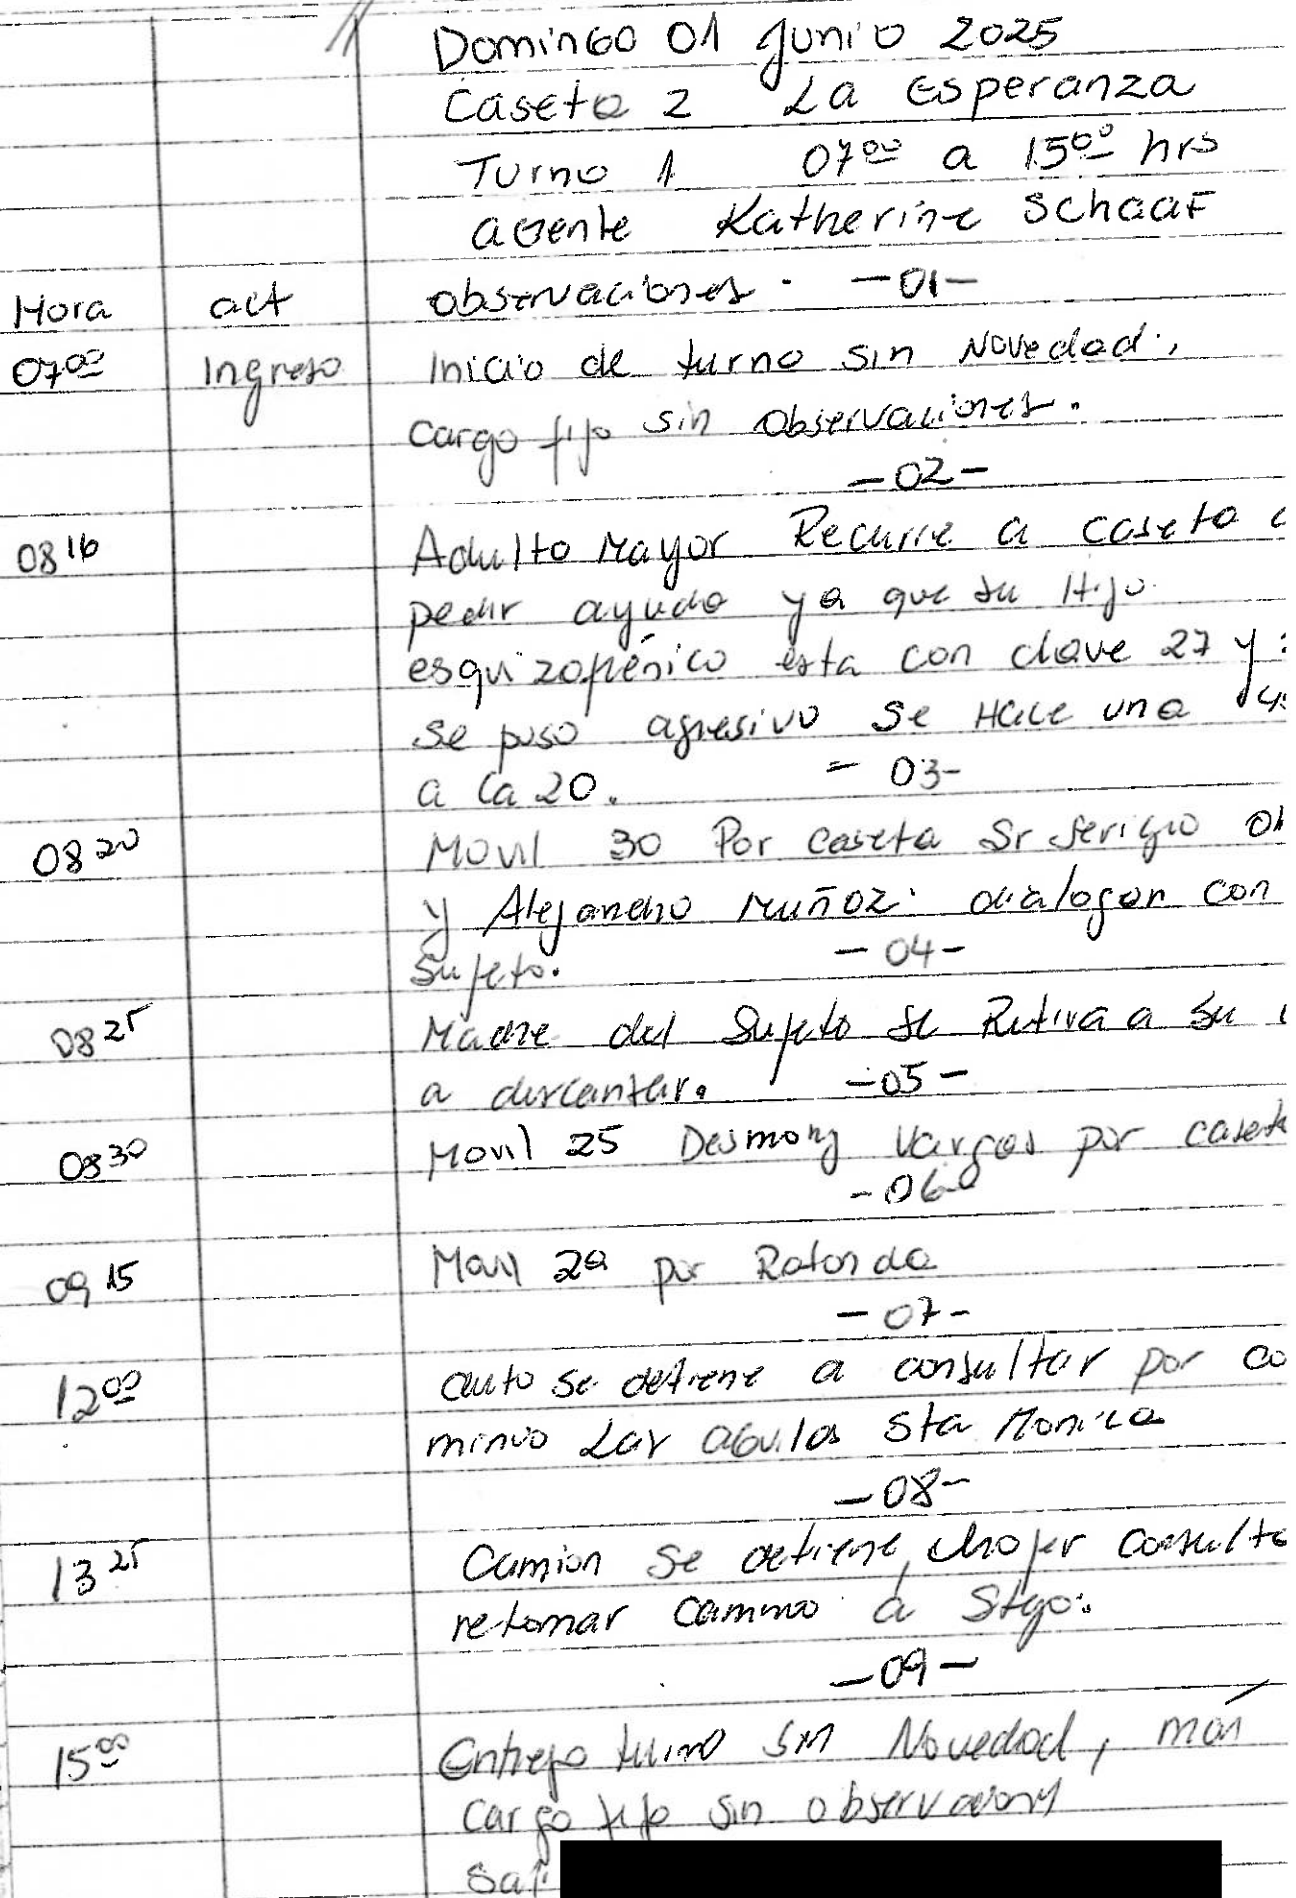 Domingo 01 Junio 2025
Caseta 2 La Esperanza
Turno 1 07⁰⁰ a 15⁰⁰ hrs
agente Katherine Schaaf
Hora act observaciones. -01-
07⁰⁰ Ingreso Inicio de turno sin Novedad.,
cargo fijo sin observaciones.
-02-
08¹⁶ Adulto Mayor Recurre a caseta
pedir ayuda ya que su Hijo.
esquizofrénico esta con clave 27 y
se puso agresivo se Hace una
a la 20. - 03-
08²⁰ Movil 30 Por caseta Sr
y Alejandro Muñoz. dialogan con
sujeto. -04-
08²⁵ Madre del sujeto se Retira a su
a descansar. -05-
08³⁰ Movil 25 Vargas por caseta
-06-
09¹⁵ Movil por Rotonda
-07-
12⁰⁰ auto se detiene a consultar por ca
mino Las aguilas Sta Monica
-08-
13²⁵ Camion se detiene, chofer consulta
retomar camino a Stgo.
-09-
15⁰⁰ Entrego turno sin Novedad, mas
cargo fijo sin observacion